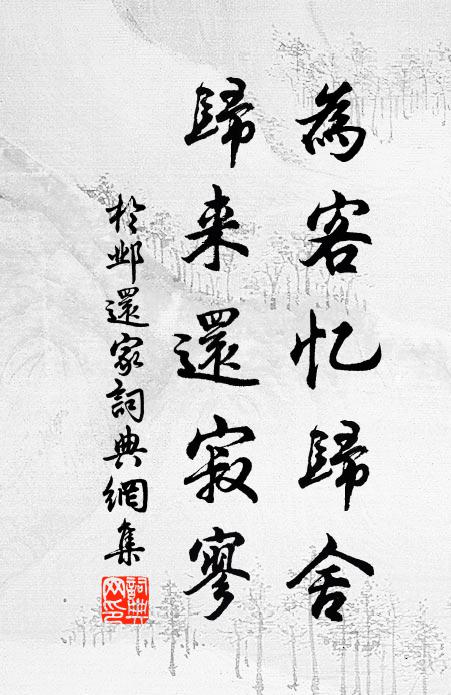 為客忆歸舍
歸来還寂寥
於邺還家詞典網集
詞典网印